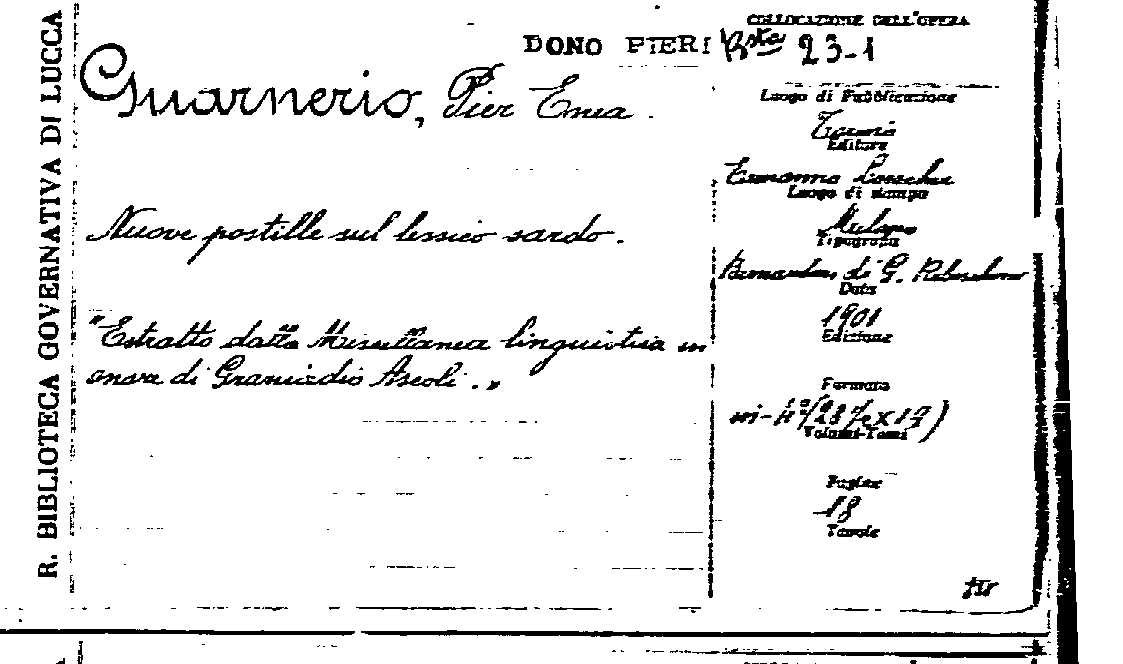 R. BIBLIOTECA GOVERNATIVA DI LUCCA
COLLOCAZIONE DELL'OPERA
DONO PIERI Bsta 23-1
Guarnerio, Pier Enea.
Luogo di Pubblicazione
Torino
Editore
Ermanno Loescher
Luogo di stampa
Milano
Tipografia
Bernardoni di G. Rebeschini
Data
1901
Edizione
Nuove postille sul lessico sardo.
"Estratto dalla Miscellanea linguistica in
onore di Graziadio Ascoli."
Formato
in-4°
Volumi-Tomi
Pagine
18
Tavole